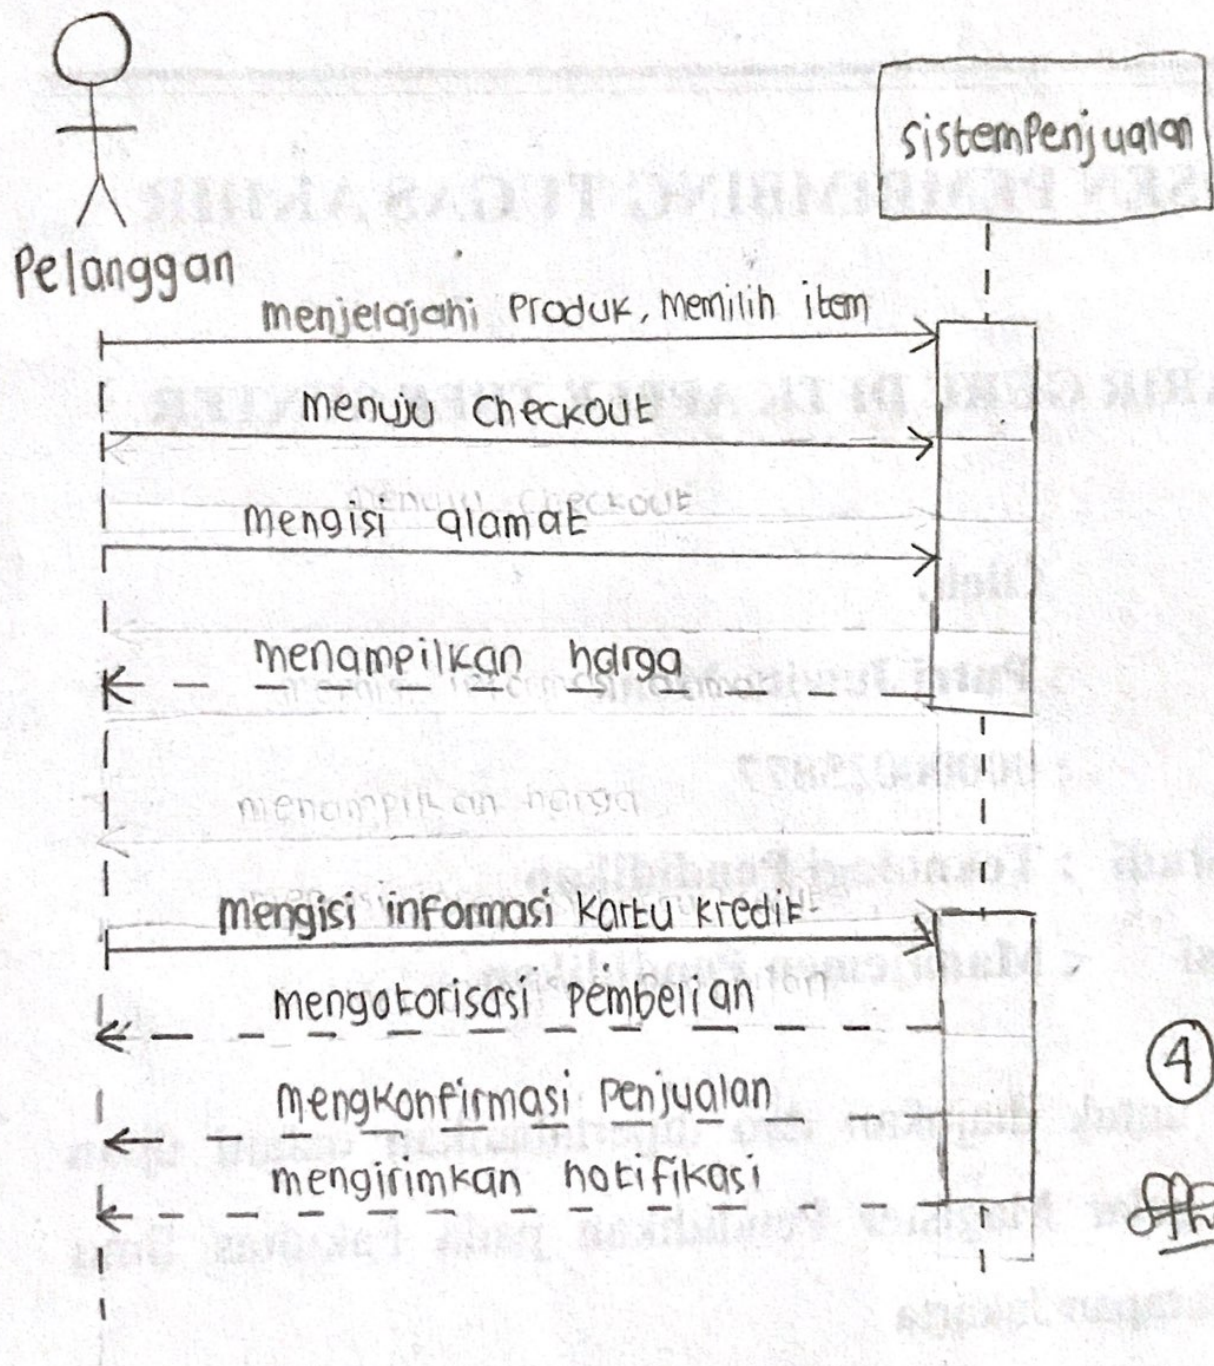 Pelanggan
sistemPenjualan
menjelajahi Produk, memilih item
menuju Checkout
menuju Checkout
mengisi alamat
menampilkan harga
menampilkan harga
mengisi informasi Kartu Kredit
mengotorisasi Pembelian
mengkonfirmasi Penjualan
mengirimkan notifikasi
4